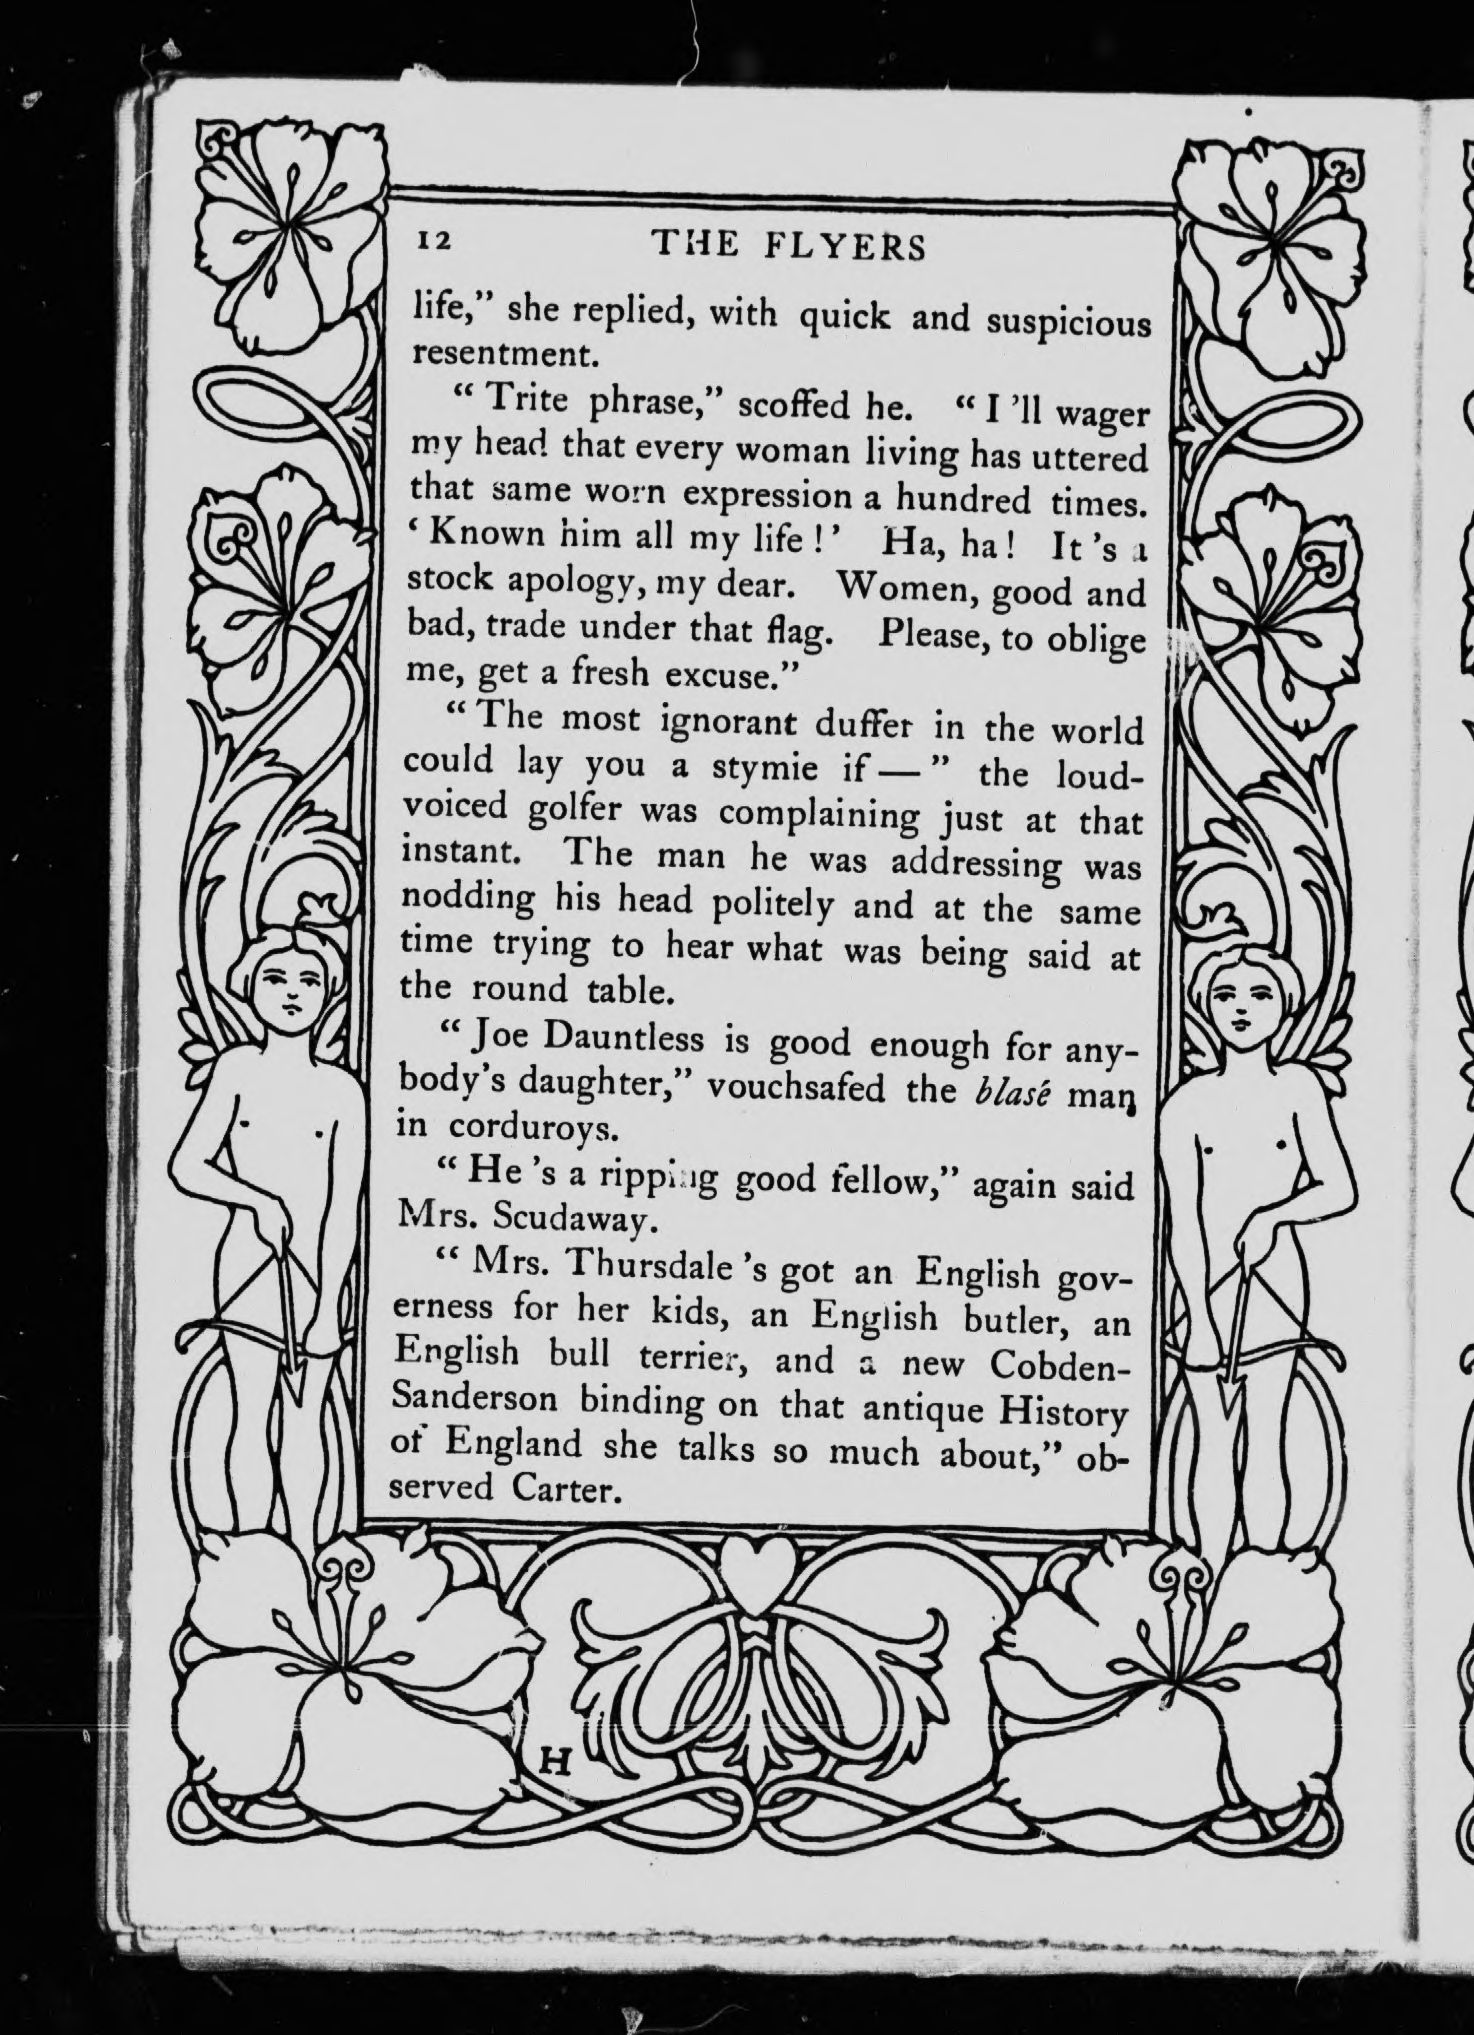 12 THE FLYERS
life,” she replied, with quick and suspicious
resentment.
“ Trite phrase,” scoffed he. “ I ’ll wager
my head that every woman living has uttered
that same worn expression a hundred times.
‘ Known him all my life ! ’ Ha, ha ! It ’s a
stock apology, my dear. Women, good and
bad, trade under that flag. Please, to oblige
me, get a fresh excuse.”
“ The most ignorant duffer in the world
could lay you a stymie if — ” the loud-
voiced golfer was complaining just at that
instant. The man he was addressing was
nodding his head politely and at the same
time trying to hear what was being said at
the round table.
“ Joe Dauntless is good enough for any-
body’s daughter,” vouchsafed the blasé man
in corduroys.
“ He ’s a ripping good fellow,” again said
Mrs. Scudaway.
“ Mrs. Thursdale ’s got an English gov-
erness for her kids, an English butler, an
English bull terrier, and a new Cobden-
Sanderson binding on that antique History
of England she talks so much about,” ob-
served Carter.
H